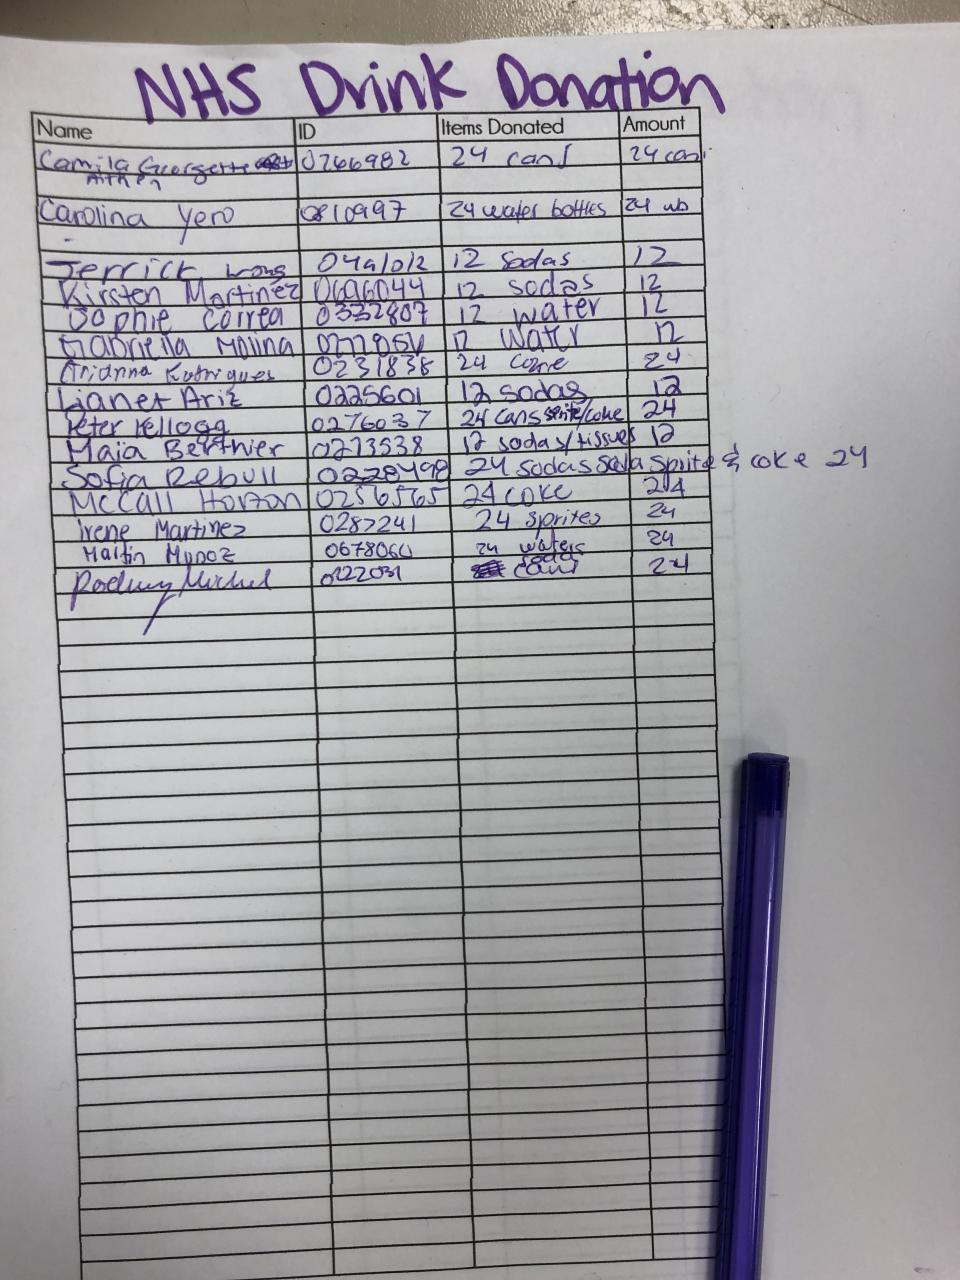 NHS Drink Donation
Name ID Items Donated Amount
Camila Georgette 0266982 24 cans 24 can
Carolina Yero 0810997 24 water bottles 24 wb
Jerrick Wong 12 sodas 12
Kirsten Martinez 0696044 12 sodas 12
Sophie Correa 0332807 12 water 12
Gabriella Molina 12 Water 12
Arianna Rodriguez 0231838 24 coke 24
Lianet Ariz 0225601 12 sodas 12
Peter Kellogg 0276037 24 cans sprite/coke 24
Maia Berthier 0273538 12 sodas/tissues 12
Sofia Rebull 0228498 24 sodas Soda Sprite & coke 24
McCall Horton 0256565 24 coke 24
Irene Martinez 0287241 24 sprites 24
Martin Munoz 0678060 24 waters 24
Rodney Michel 0222031 soda cans 24